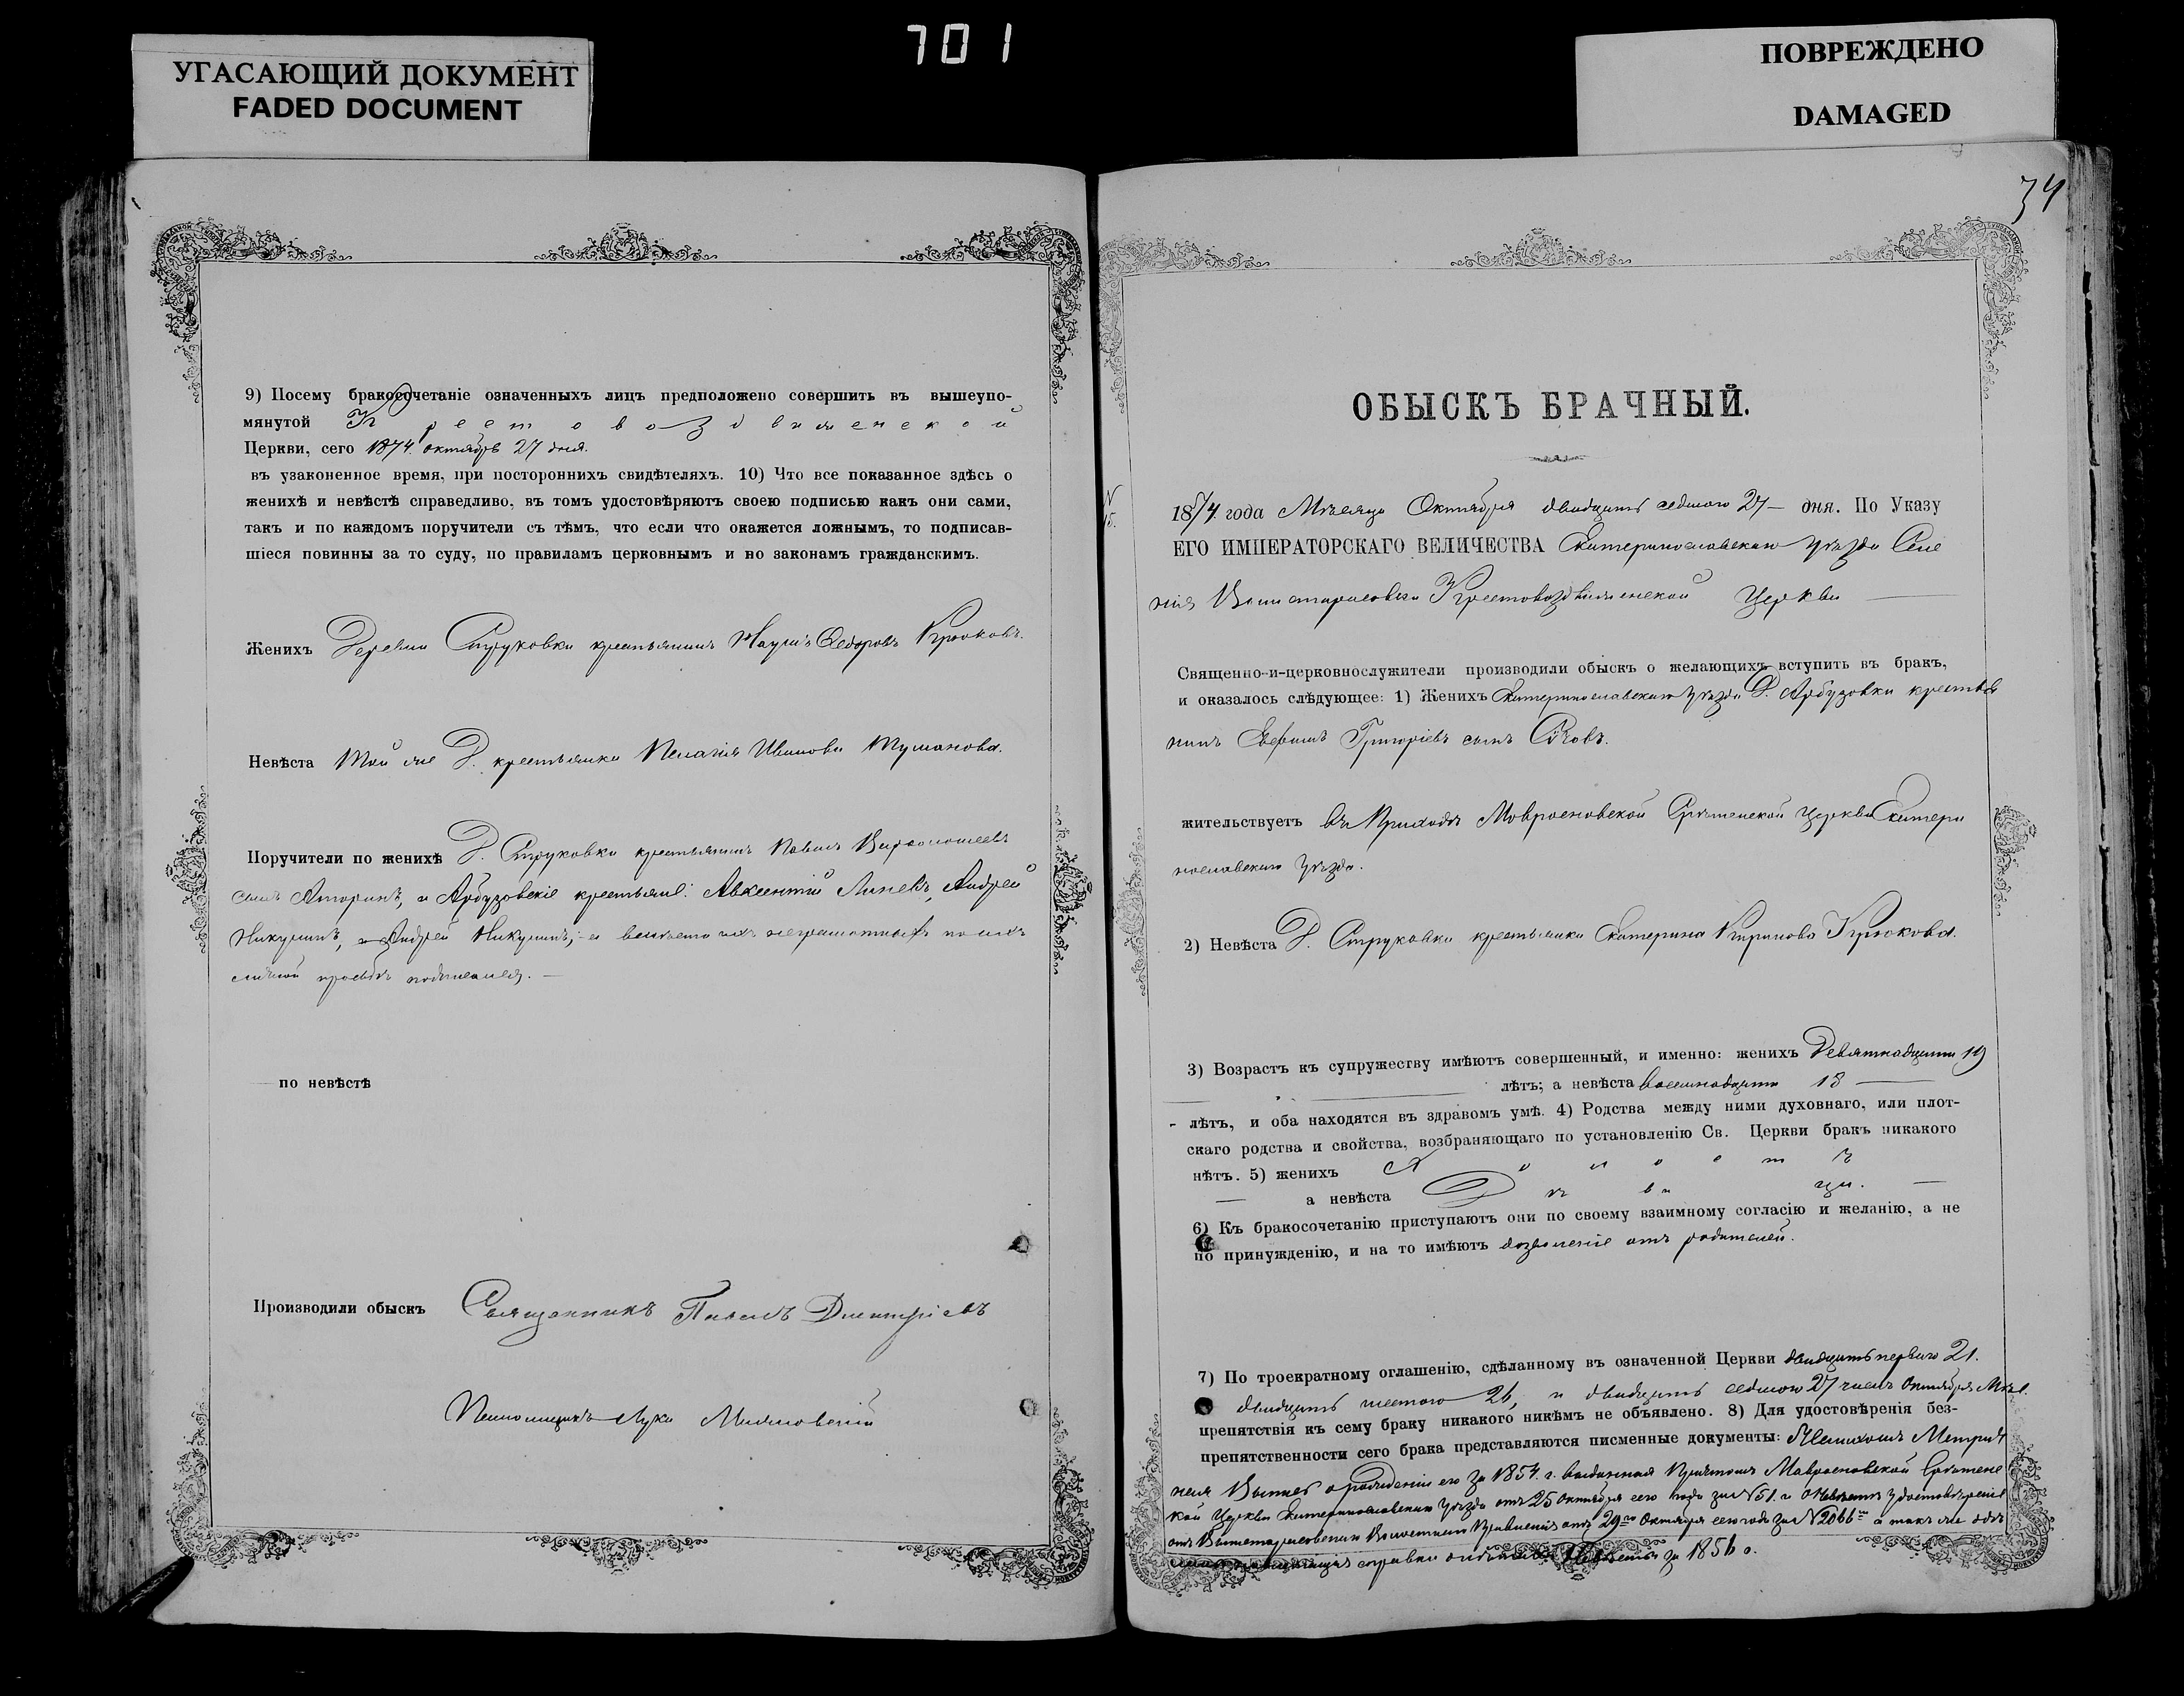 701
УГАСАЮЩИЙ ДОКУМЕНТ
FADED DOCUMENT
ПОВРЕЖДЕНО
DAMAGED
9) Посему бракосочетаніе означенныхъ лицъ предположено совершить въ вышеупо-
мянутой Крестовоздвиженской
Церкви, сего 1874 октября 27 дня.
въ узаконенное время, при постороннихъ свидѣтеляхъ. 10) Что все показанное здѣсь о
женихѣ и невѣстѣ справедливо, въ томъ удостовѣряютъ своею подписью какъ они сами,
такъ и по каждомъ поручители съ тѣмъ, что если что окажется ложнымъ, то подписав-
шіеся повинны за то суду, по правиламъ церковнымъ и по законамъ гражданскимъ.
Женихъ Деревни Струковки крестьянинъ Наумъ Федоровъ Крюковъ.
Невѣста Той же Д. крестьянка Пелагія Иванова Туманова.
Поручители по женихѣ Д. Струковки крестьянинъ Павелъ
сынъ и Арбузовскіе крестьяне: Авксентій Линевъ, Андрей
Никулинъ, Андрей Никулинъ; а вмѣсто ихъ неграмотныхъ по ихъ
личной просьбѣ подписался. —
по невѣстѣ
Производили обыскъ Священникъ Павелъ Дмитріевъ
Псаломщикъ Лука
34
ОБЫСКЪ БРАЧНЫЙ.
N
15.
1874. года Мѣсяца Октября двадцать седмого 27 — дня. По Указу
ЕГО ИМПЕРАТОРСКАГО ВЕЛИЧЕСТВА Екатеринославскаго уѣзда Селе
нія Крестовоздвиженской Церкви —
Священно-и-церковнослужители производили обыскъ о желающихъ вступить въ бракъ,
и оказалось слѣдующее: 1) Женихъ Екатеринославскаго уѣзда Д. Арбузовки крестья
нинъ Ефимъ Григоріевъ сынъ
жительствуетъ въ Приходѣ Срѣтенской Церкви Екатери
нославскаго уѣзда.
2) Невѣста Д. Струковки крестьянка Екатерина Кирилова Крюкова.
3) Возрастъ къ супружеству имѣютъ совершенный, и именно: женихъ девятнадцати 19
лѣтъ; а невѣста восемнадцати 18 —
- лѣтъ, и оба находятся въ здравомъ умѣ. 4) Родства между ними духовнаго, или плот-
скаго родства и свойства, возбраняющаго по установленію Св. Церкви бракъ никакого
нѣтъ. 5) женихъ Холостъ
— а невѣста Дѣвица. —
6) Къ бракосочетанію приступаютъ они по своему взаимному согласію и желанію, а не
по принужденію, и на то имѣютъ дозволеніе отъ родителей.
7) По троекратному оглашенію, сдѣланному въ означенной Церкви двадцать перваго 21.
двадцать шестого 26, и двадцать седмого 27 числъ Октября Мѣс.
препятствія къ сему браку никакого никѣмъ не объявлено. 8) Для удостовѣренія без-
препятственности сего брака представляются писменные документы: Женихомъ Метриче
ская о рожденіи его за 1854. г. выданная Причтомъ Срѣтенс
кой Церкви Екатеринославскаго уѣзда отъ 25 Октября сего года за N 51. и о Невѣстѣ удостовѣреніе
отъ Волостнаго Правленія отъ 29го Октября сего года за N 2066м а такъ же
справки за 1856 г.